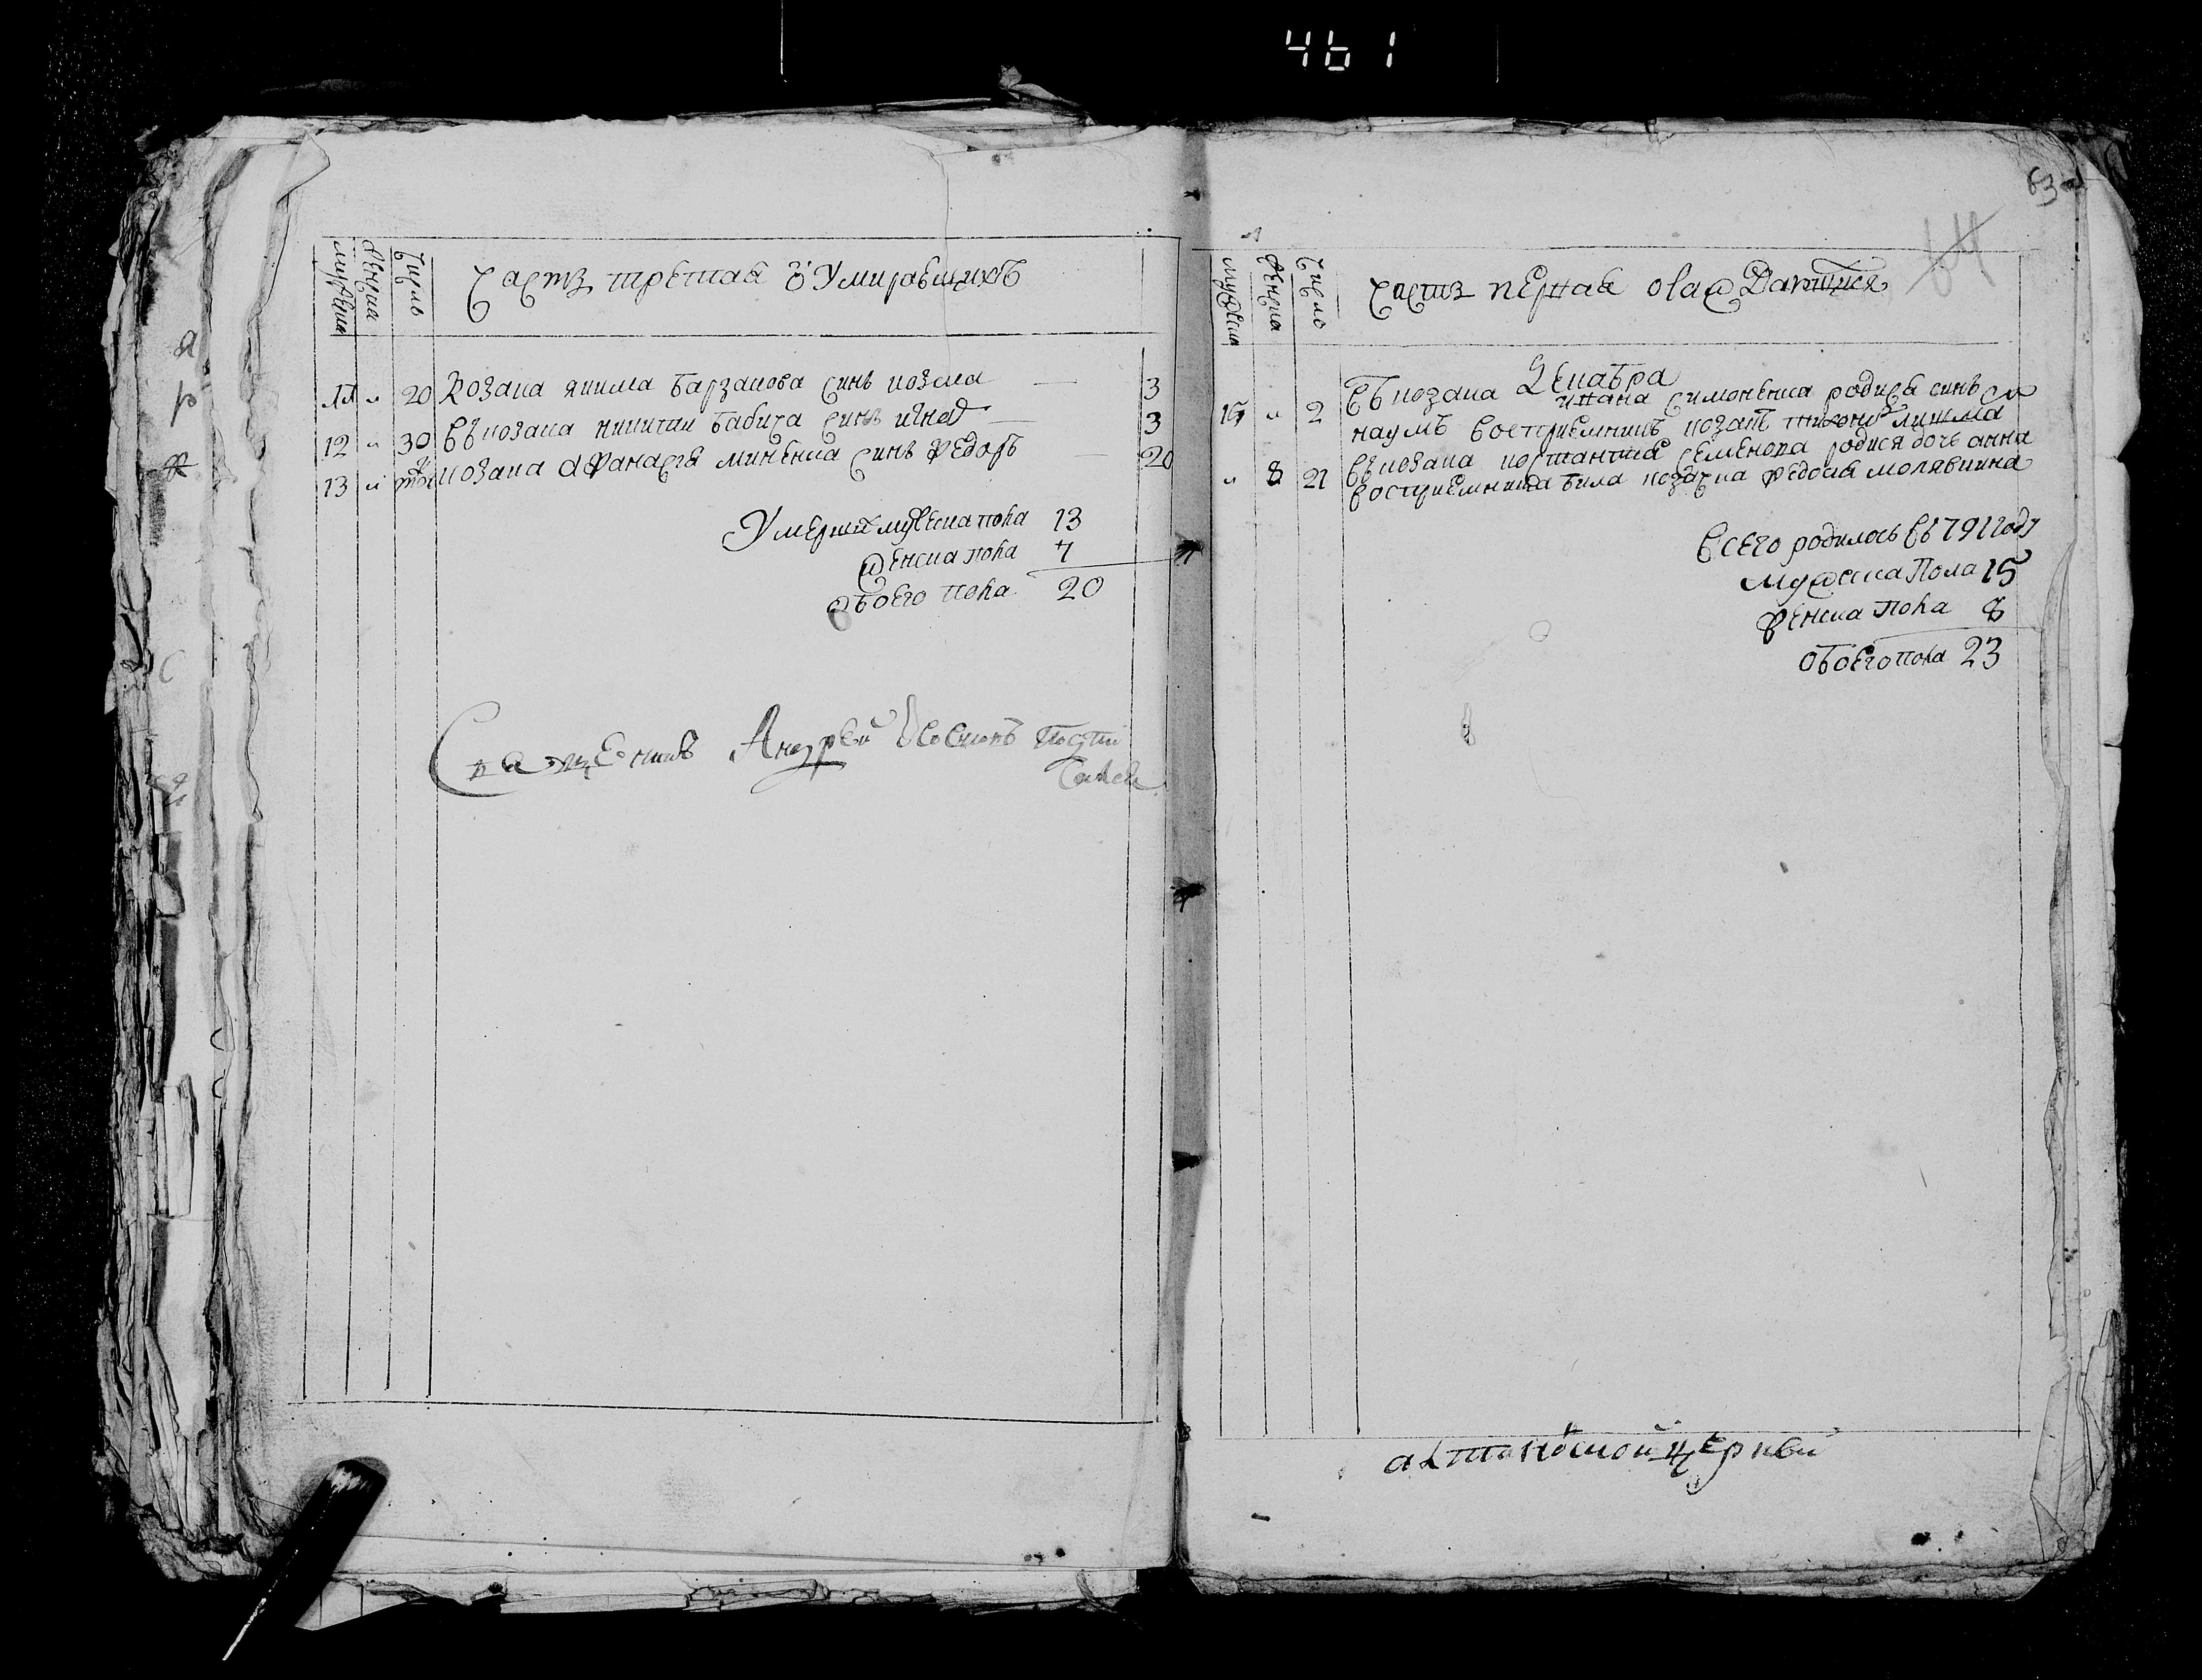 461
63
64
мужеска
женска
число
Часть третая о умирающихъ
11 " 20 козака якима барзакова синъ козма — 3
12 " 30 въ козака никитаи бабича синъ игнат — 3
13 " козака афанасія миненка синъ федоръ — 20
Умерши мужеска пола 13
женска пола 7
обоего пола 20
Священикъ Андрей
мужеска
женска
число
часть первая о раждающихся
Декабра
15 " 2 въ козака ивана симоненка родися синъ
наумъ восприемникъ козакъ
" 8 21 въ козака костантиа семенова родися дочь анна
восприемница била козачка федосия молявкина
всего родилось въ 791 году
мужеска пола 15
женска пола 8
обоего пола 23
церкви